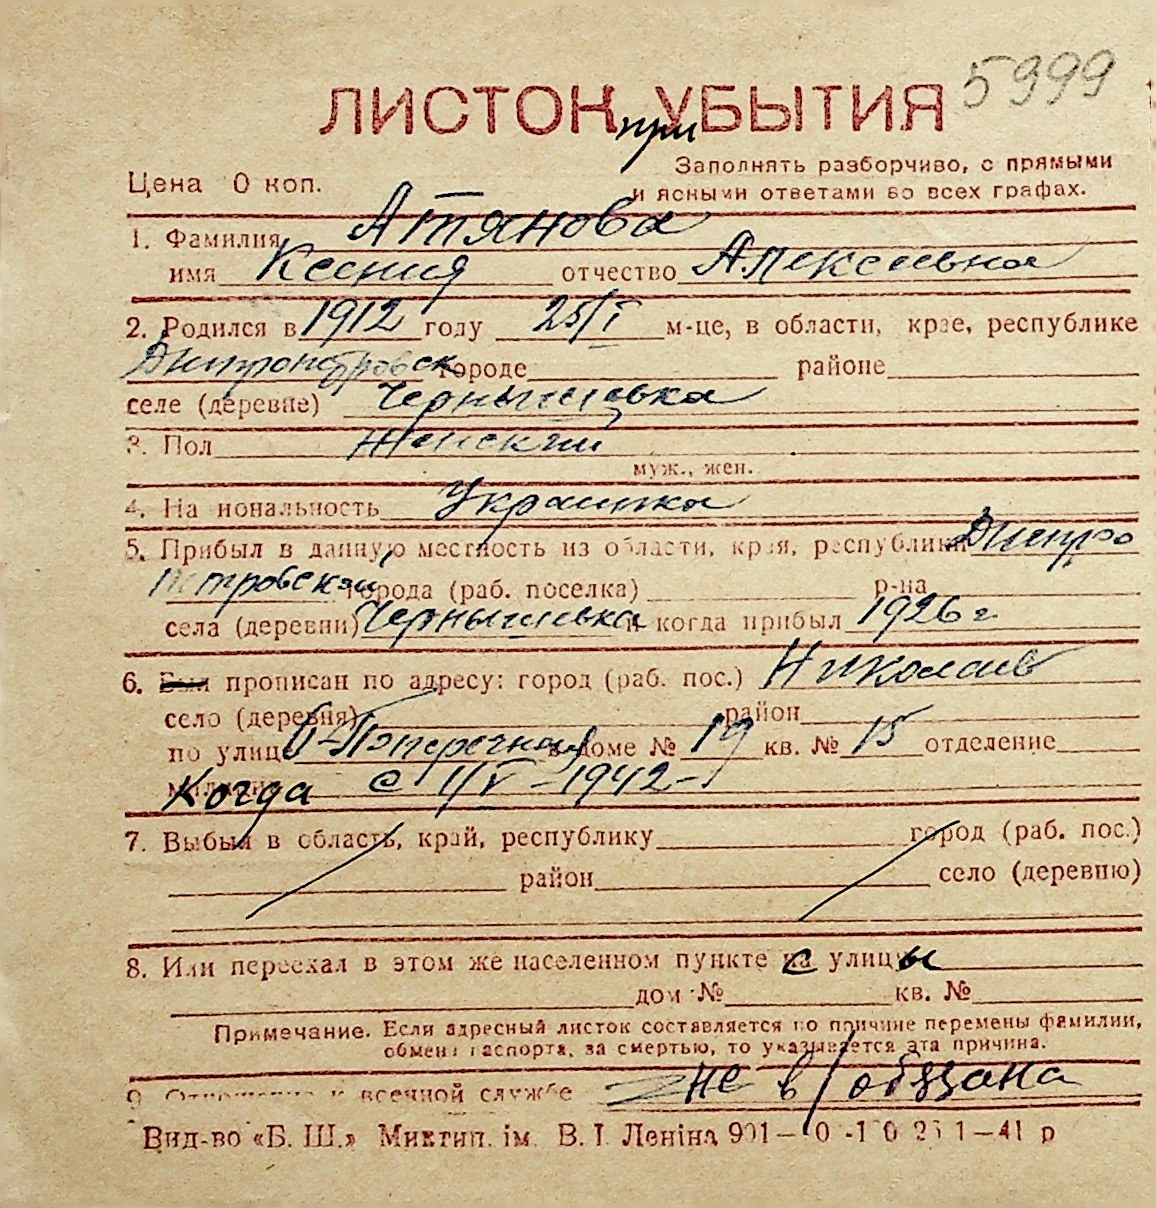 5999
ЛИСТОК при УБЫТИЯ
Цена 0 коп.
Заполнять разборчиво, с прямыми
и ясными ответами во всех графах.
1. Фамилия Атянова
имя Ксения отчество Алексеевна
2. Родился в 1912 году 25/I м-це, в области, крае, республике
Днипропетровск городе районе
селе (деревне) Чернышевка
3. Пол Женский
муж., жен.
4. Национальность Украинка
5. Прибыл в данную местность из области, края, республики Днипро
петровской города (раб. поселка) р-на
села (деревни) Чернышевка и когда прибыл 1926 г
6. Был прописан по адресу: город (раб. пос.) Николаев
село (деревня) район
по улице 6-Поперечной в доме № 19 кв. № 15 отделение
Когда с 1/V-1942-
7. Выбыл в область, край, республику город (раб. пос.)
район село (деревню)
8. Или переехал в этом же населенном пункте с улицы
дом № кв. №
Примечание. Если адресный листок составляется по причине перемены фамилии,
обмена паспорта, за смертью, то указывается эта причина.
9. Отношение к военной службе не в/обязана
Вид-во «Б. Ш.» Миктип. ім. В. І. Леніна